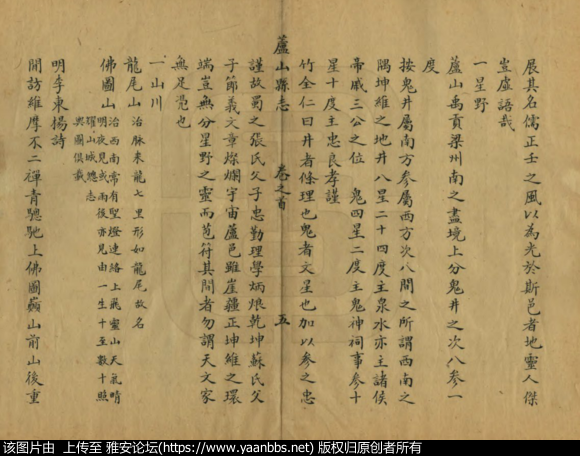 展其名儒正壬之風以為光於斯邑者地靈人傑
豈虛語哉
一星野
蘆山禹貢梁州南之盡境上分鬼井之次八參一
度
按鬼井屬南方參屬西方次八間之所謂西南之
隅坤維之地井八星二十四度主泉水亦主諸侯
帝戚三公之位 鬼四星二度主鬼神祠事參十
星十度主忠良孝謹
竹全仁曰井者條理也鬼者文星也加以參之忠
蘆山縣志 卷之首 五
謹故蜀之張氏父子忠勤理學炳烺乾坤蘇氏父
子節義文章燦爛宇宙蘆邑雖崖疆正坤維之環
端豈無分星野之靈而苞符其間者勿謂天文家
無足憑也
一山川
龍尾山 治脉來龍七里形如龍尾故名
佛圖山 治西南常有聖燈連絡上飛靈山天氣晴
明夜見或雨後亦見由一生十至數十照
耀山城總志
輿圖俱載
明李東楊詩
開訪維摩不二禪青驄馳上佛圖巔山前山後重
该图片由 上传至 雅安论坛(https://www.yaanbbs.net) 版权归原创者所有